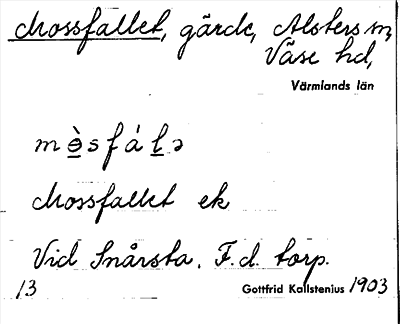 Mossfallet, gärde, Alsters sn,
Väse hd,
Värmlands län
mo̱̊̀sfáḻə
Mossfallet ek
Vid Snårsta. F.d. torp.
13 Gottfrid Kallstenius 1903